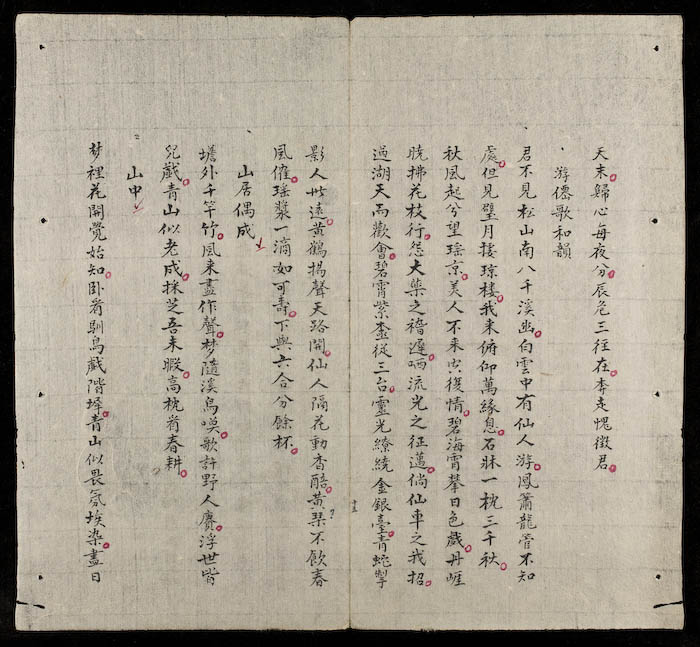 天末歸心每夜分辰危三徑在奔走愧徵君
游僊歌和韻
君不見松山南八千溪幽白雲中有仙人游鳳簫龍管不知
處但見璧月摟琼樓我来俯仰萬緣息石牀一枕三千秋
秋風起兮望瑶京美人不来空復情碧海霄攀日色戲丹崕
曉拂花枝行怨大藥之稽遲哂流光之征邁倘仙車之我招
過湖天而歡會碧霄紫極從三台靈光繚繞金銀臺青蛇掣
十三
影人世遠黄鶴揚聲天路開仙人隔花動杳醅黄琹不飲春
風催瑶漿一滴如可壽下與六合分餘杯
山居偶成
墻外千竿竹風来盡作聲梦隨溪鳥嘆歌許野人賡浮世皆
兒戲青山似老成採芝吾未暇高枕看春耕
山中
梦裡花開覺始知卧看馴鳥戲階墀青山似畏氛埃染盡日